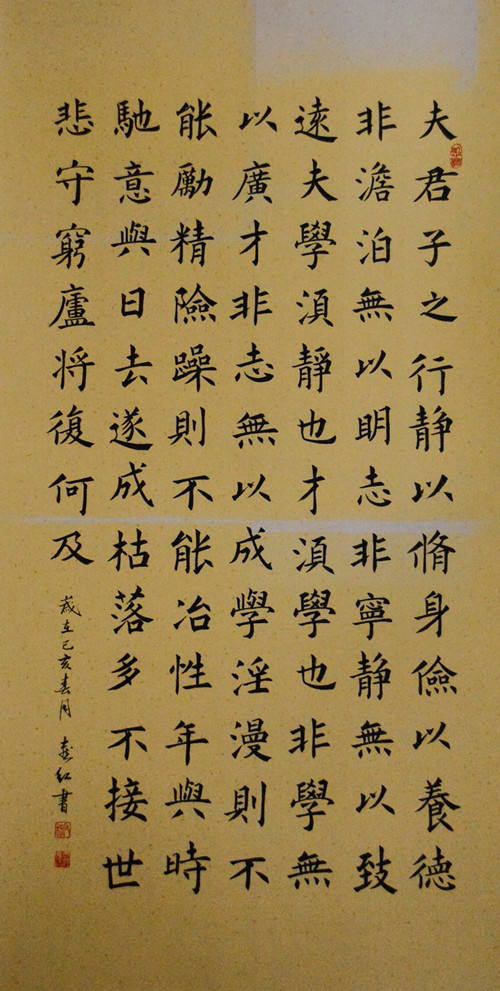 夫君子之行静以脩身儉以養德
非澹泊無以明志非寧静無以致
遠夫學須静也才須學也非學無
以廣才非志無以成學淫漫則不
能勵精險躁則不能冶性年與時
馳意與日去遂成枯落多不接世
悲守窮廬将復何及
歲在己亥春月 红書